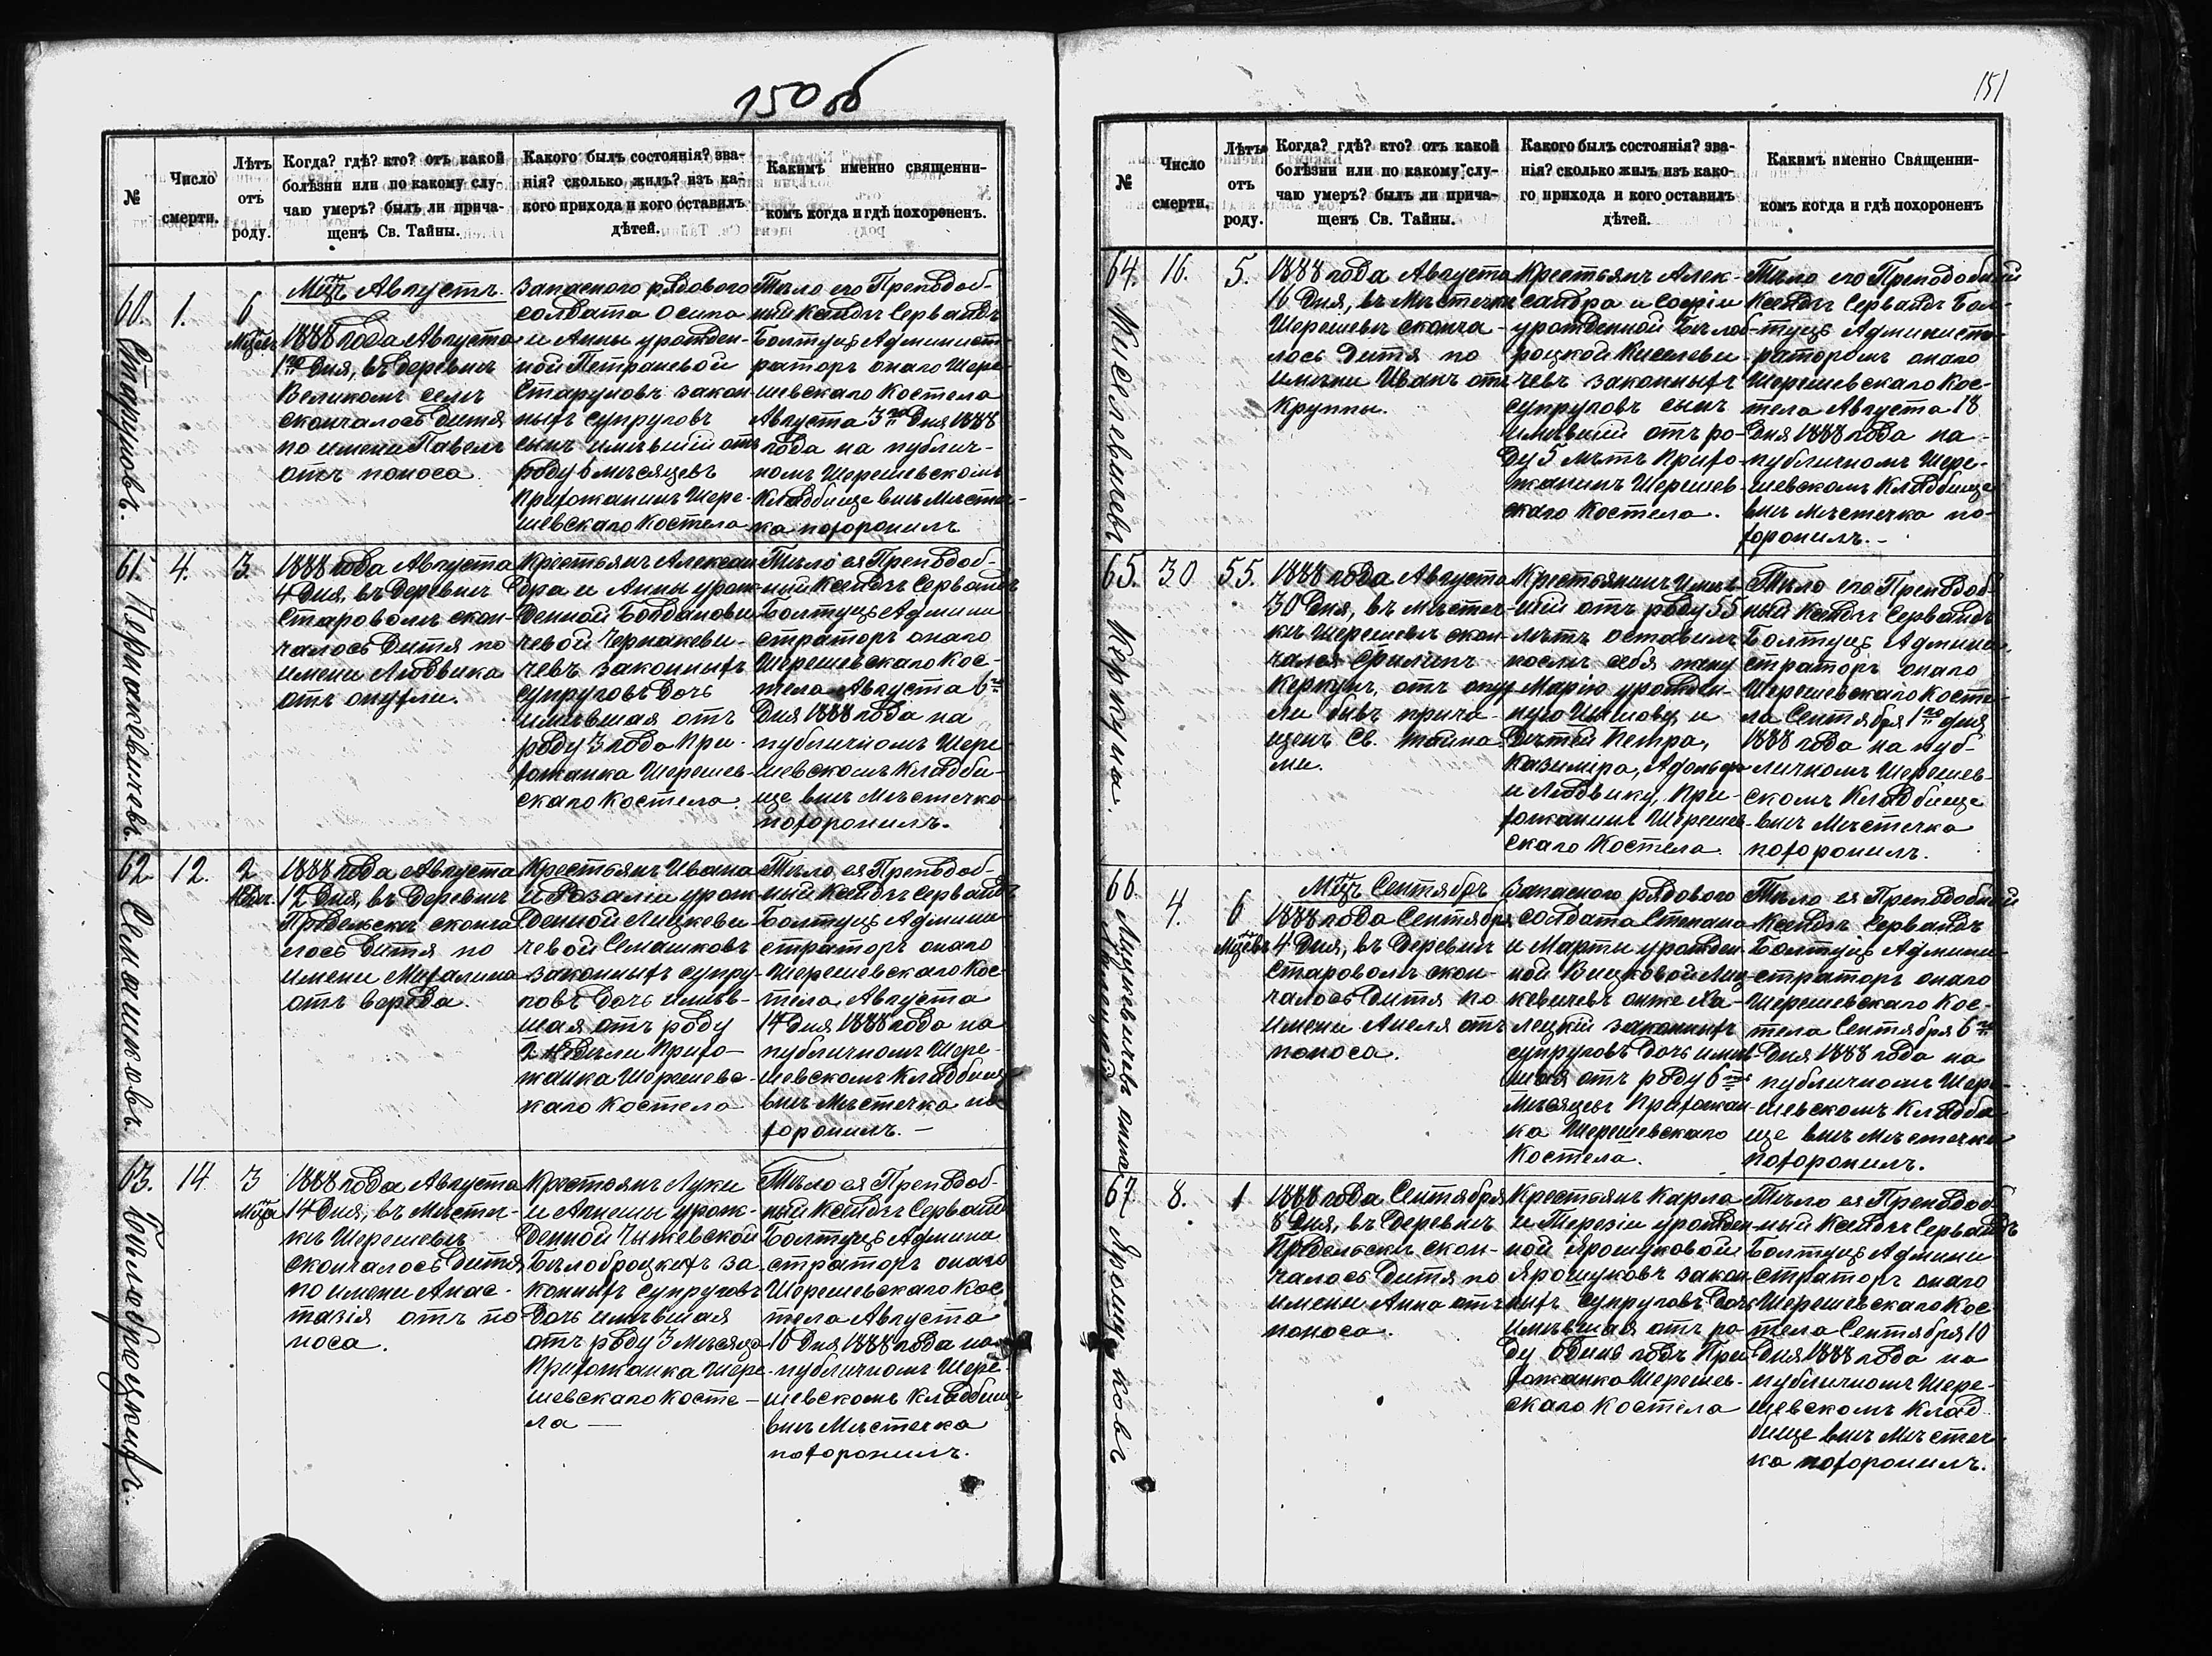 150 об
№
Число
смерти.
Лѣтъ
отъ
роду.
Когда? гдѣ? кто? отъ какой
болѣзни или по какому слу-
чаю умеръ? былъ ли прича-
щенъ Св. Тайны.
Какого былъ состоянія? зва-
нія? сколько жилъ? изъ ка-
кого прихода и кого оставилъ
дѣтей.
Какимъ именно священни-
комъ когда и гдѣ похороненъ.
60.
Старуновъ.
1.
6
Мцевъ
Мцъ Августъ.
1888 года Августа
1го дня, въ деревнѣ
Великомъ селѣ
скончалось дитя
по имени Павелъ
отъ поноса.
Запаснаго рядового
солдата Осипа
и Анны урожден-
ной Петрашевой
Старуновъ закон-
ныхъ супруговъ
сынъ имѣвшій отъ
роду 6 мѣсяцевъ
Прихожанинъ Шере-
шевскаго Костела
Тѣло его Преподоб-
ный Ксендзъ Сервандъ
Болтуць Админист-
раторъ онаго Шере-
шевскаго Костела
Августа 3го дня 1888
года на публич-
номъ Шерешевскомъ
Кладбище внѣ Мѣстеч-
ка похоронилъ
61.
Чернакевичевъ.
4.
3.
1888 года Августа
4 дня, въ деревнѣ
Староволѣ скон-
чалось дитя по
имени Людвика
отъ опухли.
Крестьянъ Алексан
дра и Анны урож-
денной Богданови-
чевой Чернакеви-
чевъ законныхъ
супруговъ дочь
имѣвшая отъ
роду 3 года При-
хожанка Шерешев-
скаго Костела.
Тѣло ея Преподоб-
ный Ксендзъ Сервандъ
Болтуць Админи
страторъ онаго
Шерешевскаго Кос-
тела Августа 6го
дня 1888 года на
публичномъ Шере-
шевскомъ Кладби-
ще внѣ Мѣстечка
похоронилъ.
62
Семашковъ
12.
2
Нѣдел.
1888 года Августа
12 дня, въ деревнѣ
сконча
лось дитя по
имени Михалина
отъ вереда.
Крестьянъ Ивана
и Розаліи урож
денной Лицкеви
чевой Семашковъ
законныхъ супру-
говъ дочь имѣв-
шая отъ роду
2 недѣли Прихо-
жанка Шерешевс-
каго Костела
Тѣло ея Преподоб-
ный Ксендзъ Сервандъ
Болтуць Админи
страторъ онаго
Шерешевскаго Кос-
тела Августа
14 дня 1888 года на
публичномъ Шере-
шевскомъ Кладбище
внѣ Мѣстечка по
хоронилъ.-
63.
Бѣлоброцкихъ.
14
3
Мцца
1888 года Августа
14 дня, въ Мѣстеч-
кѣ Шерешевѣ
скончалось дитя
по имени Анас-
тазія отъ по
носа.
Крестьянъ Луки
и Агнешы урож-
денной Чижевской
Бѣлоброцкихъ за-
конныхъ супруговъ
дочь имѣвшая
отъ роду 3 Мѣсяца
Прихожанка Шере-
шевскаго Косте-
ла —
Тѣло ея Преподоб-
ный Ксендзъ Сервандъ
Болтуць Админи
страторъ онаго
Шерешевскаго Кос
тела Августа
16 дня 1888 года на
публичномъ Шере-
шевскомъ Кладбище
внѣ Мѣстечка
похоронилъ.
151
№
Число
смерти.
Лѣтъ
отъ
роду.
Когда? гдѣ? кто? отъ какой
болѣзни или по какому слу-
чаю умеръ? былъ ли прича-
щенъ Св. Тайны.
Какого былъ состоянія? зва-
нія? сколько жилъ изъ како-
го прихода и кого оставилъ
дѣтей.
Какимъ именно Священни-
комъ когда и гдѣ похороненъ
64.
Киселевичевъ
16.
5.
1888 года Августа
16 дня, въ Мѣстечкѣ
Шерешевѣ сконча-
лось дитя по
имени Иванъ отъ
Круппы.
Крестьянъ Алек-
сандра и Софіи
урожденной Бѣлоб-
роцкой Киселеви-
чевъ законныхъ
супруговъ сынъ
имѣвшій отъ ро-
ду 5 лѣтъ Прихо-
жанинъ Шерешев-
скаго Костела.
Тѣло его Преподобный
Ксендзъ Сервандъ Бол-
туць Администо-
раторомъ онаго
Шерешевскаго Кос-
тела Августа 18
дня 1888 года на
публичномъ Шере-
шевскомъ Кладбище
внѣ Мѣстечка по-
хоронилъ.-
65.
Керкуца.
30
55.
1888 года Августа
30 дня, въ Мѣстеч-
кѣ Шерешевѣ скон-
чался Филипъ
Керкуцъ, отъ опух
ли бывъ прича-
щенъ Св. тайна
ми.
Крестьянинъ имѣв-
шій отъ роду 55
лѣтъ оставилъ
послѣ себя жену
Марію урожден-
ную и
дѣтей Петра,
Казиміра, Адольфа
и Людвику, При-
хожанинъ Шерешев-
скаго Костела.
Тѣло его Преподоб-
ный Ксендзъ Сервандъ
Болтуць Админи-
страторъ онаго
Шерешевскаго Косте-
ла Сентября 1го дня
1888 года на пуб-
личномъ Шерешев-
скомъ Кладбище
внѣ Мѣстечка
похоронилъ.
66.
Лицкевичевъ онже
4.
6
Мцевъ
Мцъ Сентябрь
1888 года Сентября
4 дня, въ деревнѣ
Староволѣ скон-
чалось дитя по
имени Анеля отъ
поноса.
Запаснаго рядового
солдата Степана
и Марты урожден-
ной Вицковой Лиц-
кевичевъ онже Ха-
лецкій законныхъ
супруговъ дочь имѣв
шая отъ роду 6ть
Мѣсяцевъ Прихожан-
ка Шерешевскаго
Костела.
Тѣло ея Преподобный
Ксендзъ Сервандъ
Болтуць Админи-
страторъ онаго
Шерешевскаго Кос-
тела Сентября 6го
дня 1888 года на
публичномъ Шере-
шевскомъ Кладби
ще внѣ Мѣстечка
похоронилъ.
67
Ярошуковъ
8.
1
1888 года Сентября
8 дня, въ деревнѣ
скон-
чалось дитя по
имени Анна отъ
поноса.
Крестьянъ Карла
и Терезіи урожден
ной Ярошуковой
Ярошуковъ закон
ныхъ супруговъ дочь
имѣвшая отъ ро
ду одинъ годъ При
хожанка Шерешев-
скаго Костела
Тѣло ея Преподоб-
ный Ксендзъ Сервандъ
Болтуць Админи
страторъ онаго
Шерешевскаго Кос
тела Сентября 10
дня 1888 года на
публичномъ Шере-
шевскомъ Клад
бище внѣ Мѣстеч-
ка похоронилъ.